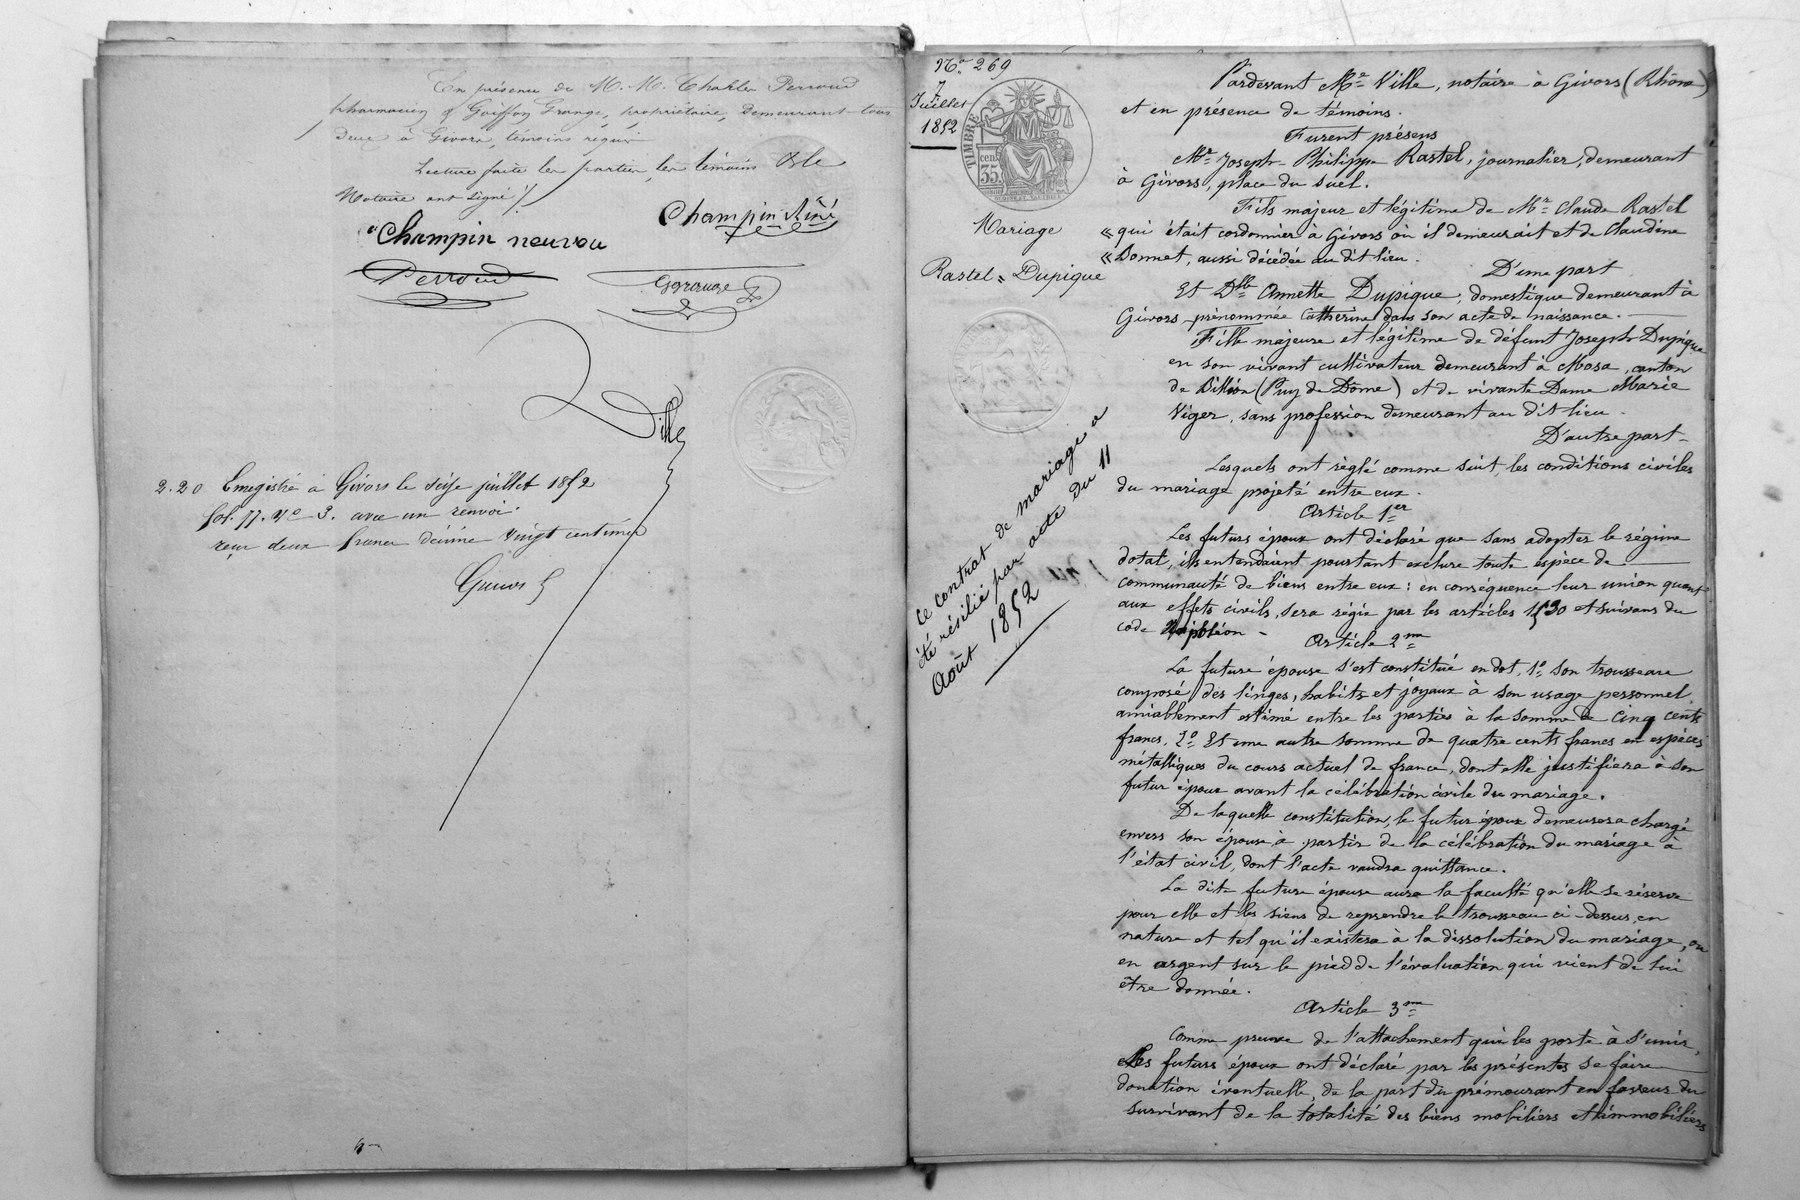 En présence de M. M. Charles Perroud
pharmacien & Goiffon Grange, propriétaire, demeurant tous
deux à Givors, témoins requis
Lecture faite les parties, les témoins & le
Notaire ont signé /.
Champin Aîné
Champin neuveu
Perroud
Ggrange
Ville
2.20 Enregistré à Givors le seize juillet 1852
fol. 77. Vº 3. avec un renvoi.
reçu deux francs décime vingt centimes
Nº 269
7
Juillet
1852
TIMBRE
35 cen
Mariage
Rastel = Dupique
ce contrat de mariage a
été résilié par acte du 11
Août 1852
Pardevant Me Ville, notaire à Givors (Rhône)
et en présence de témoins.
Furent présens
Mr Joseph-Philippe Rastel, journalier, demeurant
à Givors, place du suel.
Fils majeur et légitime de Mr Claude Rastel
« qui était cordonnier à Givors où il demeurait et de Claudine
« Donnet, aussi décédée au dit lieu.
D'une part
Et Dlle Annette Dupique, domestique demeurant à
Givors prénommée Catherine dans son acte de naissance.
Fille majeure et légitime de défunt Joseph Dupique
en son vivant cultivateur demeurant à Mosa, canton
de Billion (Puy de Dôme) et de vivante Dame Marie
Viger, sans profession demeurant au dit lieu.
D'autre part
Lesquels ont réglé comme suit les conditions civiles
du mariage projeté entre eux.
Article 1er
Les futurs époux ont déclaré que sans adopter le régime
dotal, ils entendaient pourtant exclure toute espèce de
communauté de biens entre eux : en conséquence leur union quant
aux effets civils, sera régie par les articles 1530 et suivans du
code Napoléon -
Article 2me
La future épouse s'est constitué en dot, 1º son trousseau
composé des linges, habits et joyaux à son usage personnel
amiablement estimé entre les parties à la somme de cinq cents
francs, 2º Et une autre somme de quatre cents francs en espèces
métalliques du cours actuel de france, dont elle justifiera à son
futur époux avant la célébration civile du mariage.
De laquelle constitution, le futur époux demeurera chargé
envers son épouse à partir de la célébration du mariage à
l'état civil, dont l'acte vaudra quittance.
La dite future épouse aura la faculté qu'elle se réserve
pour elle et les siens de reprendre le trousseau ci-dessus, en
nature et tel qu'il existera à la dissolution du mariage, ou
en argent sur le pied de l'évaluation qui vient de lui
être donnée.
Article 3me
Comme preuve de l'attachement qui les porte à s'unir,
Les futurs époux ont déclaré par les présentes se faire
donation éventuelle, de la part du prémourant en faveur du
survivant de la totalité des biens mobiliers et immobiliers